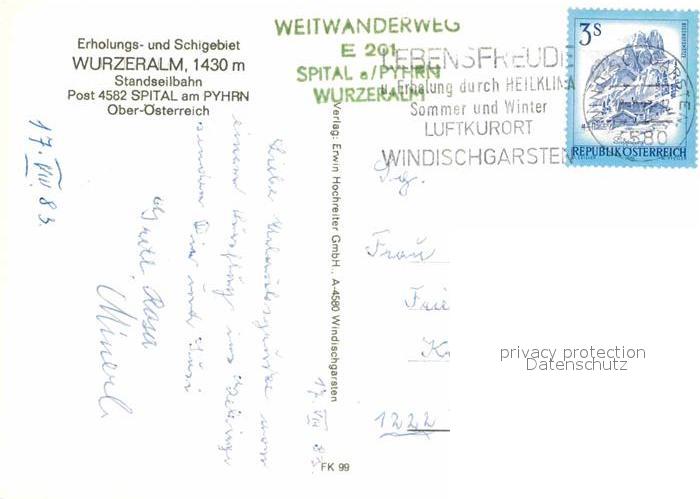 Erholungs- und Schigebiet
WURZERALM, 1430 m
Standseilbahn
Post 4582 SPITAL am PYHRN
Ober-Österreich
WEITWANDERWEG
E 201
SPITAL a/PYHRN
WURZERALM
LEBENSFREUDE
u. Erholung durch HEILKLIMA
Sommer und Winter
LUFTKURORT
WINDISCHGARSTEN
3 S
REPUBLIK ÖSTERREICH
4580
17. VIII. 83.
Liebe Urlaubsgrüße von
einem Ausflug ins Gebirge
senden Dir und Susi
Rosa
17. VIII 83.
Verlag: Erwin Hochreiter GmbH., A-4580 Windischgarsten
FK 99
Frau
1222
privacy protection
Datenschutz